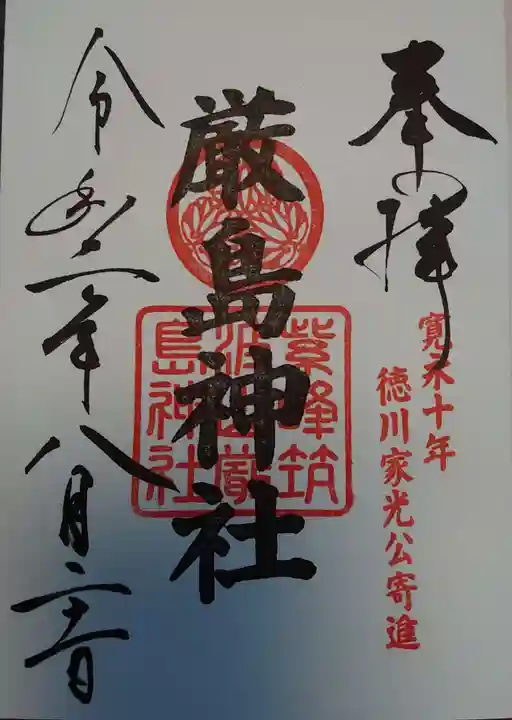 奉拝
寛永十年
徳川家光公寄進
厳島神社
紫峰筑
波山厳
島神社
令和二年八月二十二日